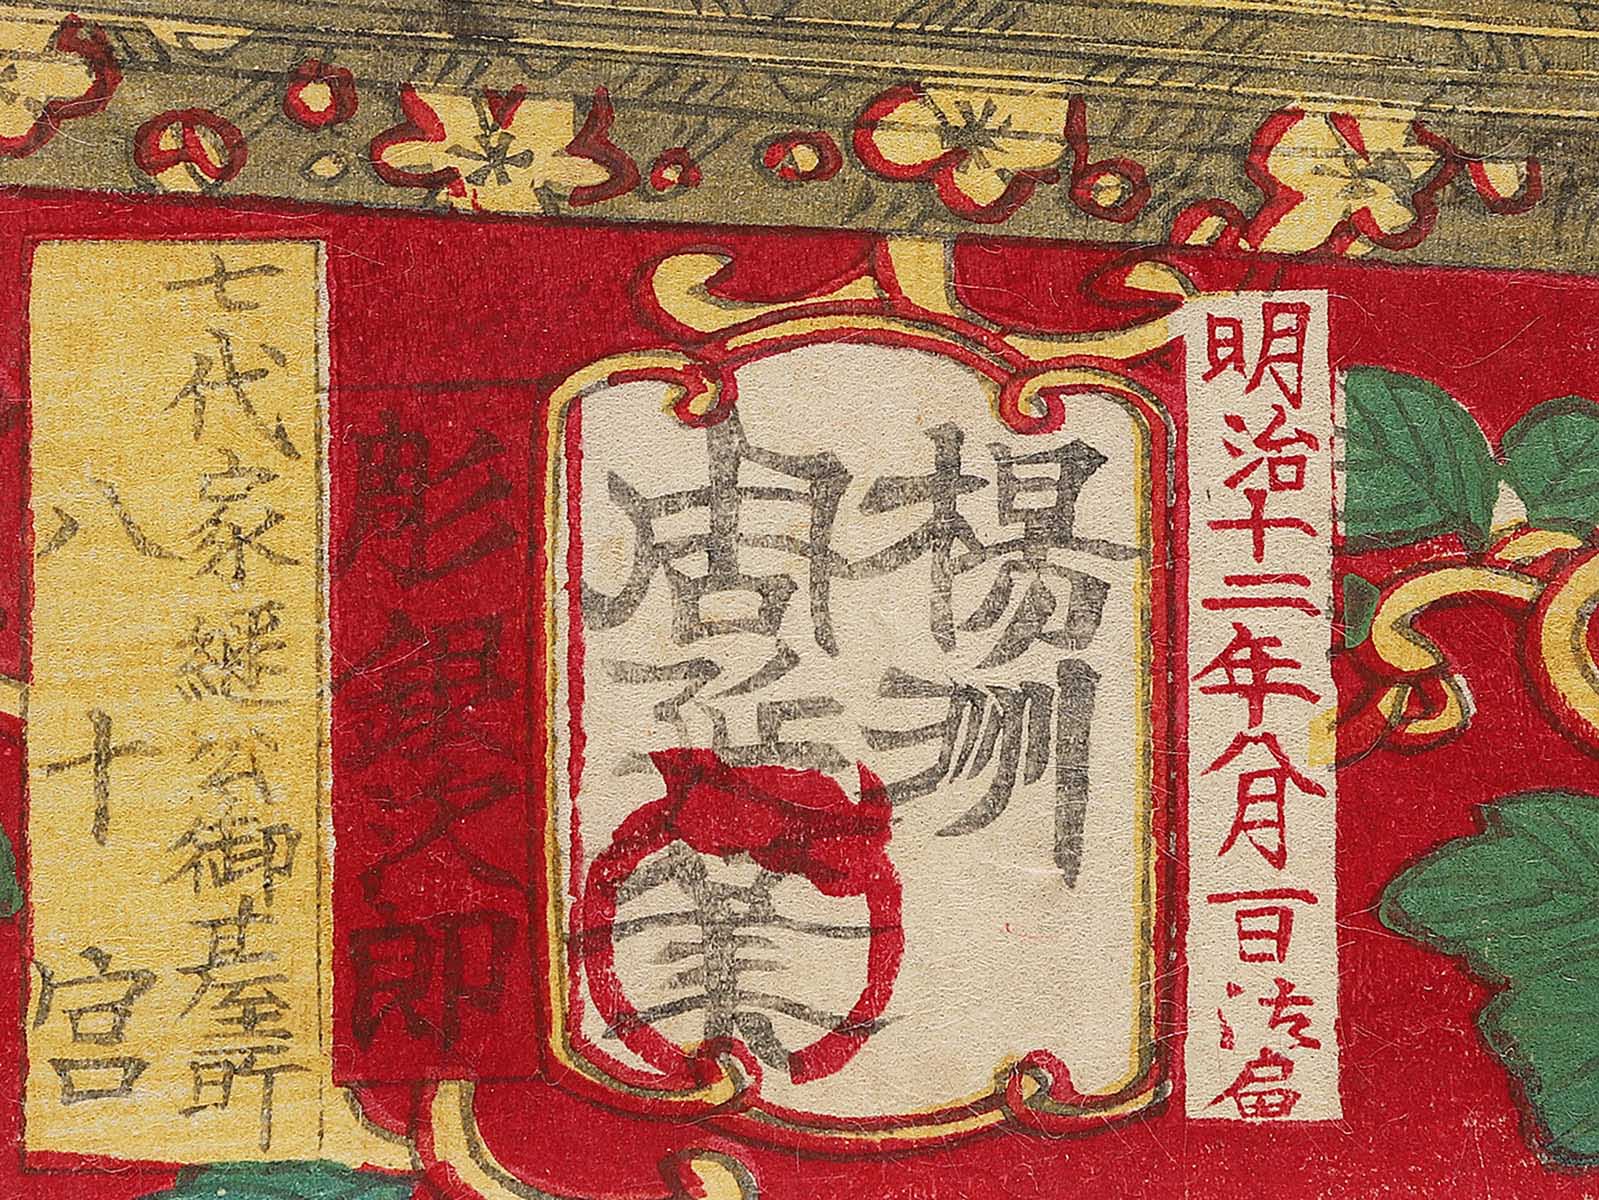 明治十二年八月一日御届
楊洲
周延筆
彫銀次郎
七代家繼公御臺所
八十宮